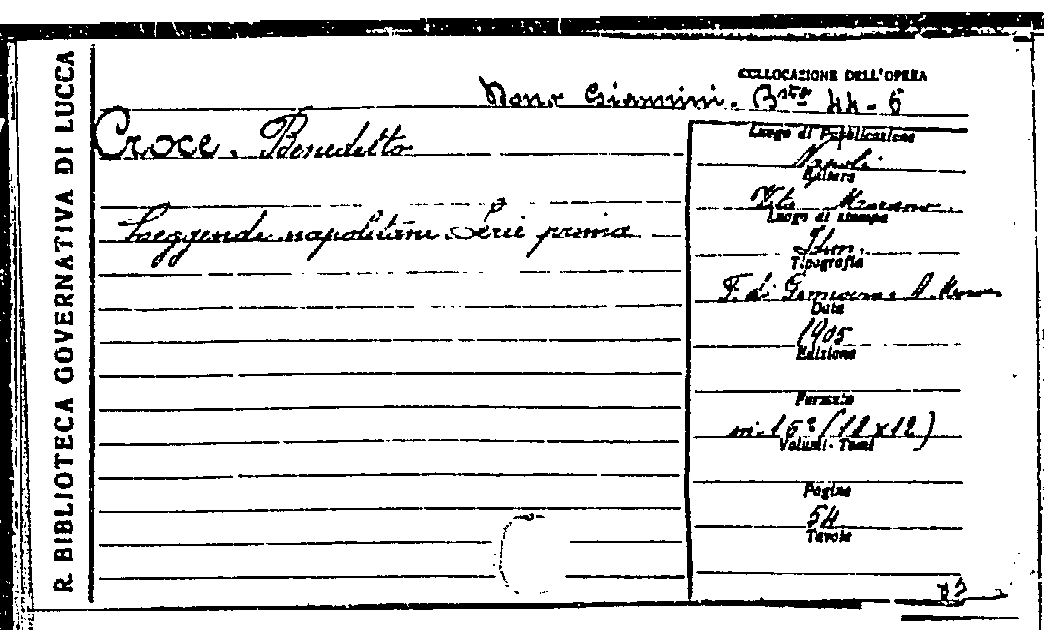 R. BIBLIOTECA GOVERNATIVA DI LUCCA
COLLOCAZIONE DELL'OPERA
Giannini. Bta 44-6
Croce. Benedetto
Leggende napoletane Serie prima
Luogo di Pubblicazione
Napoli
Editore
Vito Morano.
Luogo di stampa
Tipografia
F. di Gennaro e A. Morano
Data
1905
Edizione
Formato
in-16° (12x12)
Volumi - Tomi
Pagine
54
Tavole